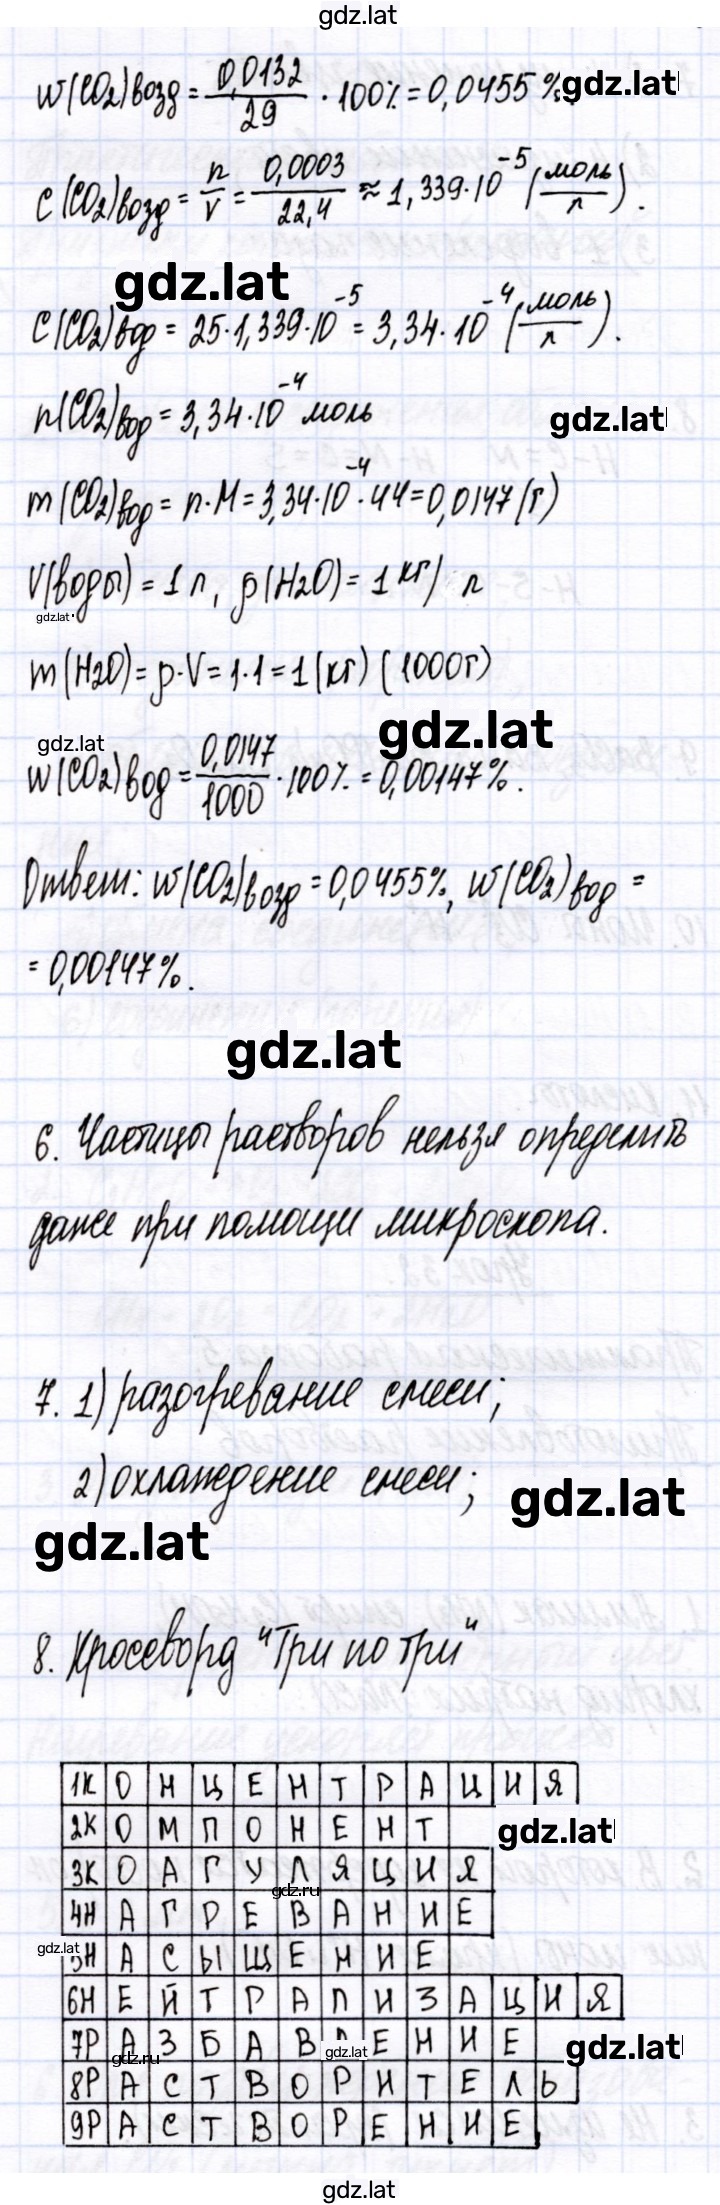 gdz.lat
w(CO2)возд = 0,0132/29 · 100% = 0,0455%. gdz.lat
C(CO2)возд = n/V = 0,0003/22,4 ≈ 1,339·10⁻⁵ (моль/л).
gdz.lat
C(CO2)вод = 25·1,339·10⁻⁵ = 3,34·10⁻⁴ (моль/л).
n(CO2)вод = 3,34·10⁻⁴ моль gdz.lat
m(CO2)вод = n·M = 3,34·10⁻⁴·44 = 0,0147 (г)
V(воды) = 1 л, ρ(H2O) = 1 кг/л
gdz.lat
m(H2O) = ρ·V = 1·1 = 1 (кг) (1000г)
gdz.lat gdz.lat
w(CO2)вод = 0,0147/1000 · 100% = 0,00147%.
Ответ: w(CO2)возд = 0,0455%, w(CO2)вод =
= 0,00147%.
gdz.lat
6. Частицы растворов нельзя определить
даже при помощи микроскопа.
7. 1) разогревание смеси;
2) охлаждение смеси; gdz.lat
gdz.lat
8. Кроссворд "Три по три"
1К О Н Ц Е Н Т Р А Ц И Я
2К О М П О Н Е Н Т gdz.lat
3К О А Г У Л Я Ц И Я
gdz.ru
4Н А Г Р Е В А Н И Е
gdz.lat
5Н А С Ы Щ Е Н И Е
6Н Е Й Т Р А Л И З А Ц И Я
7Р А З Б А В Л Е Н И Е gdz.lat
gdz.ru gdz.lat
8Р А С Т В О Р И Т Е Л Ь
9Р А С Т В О Р Е Н И Е
gdz.lat